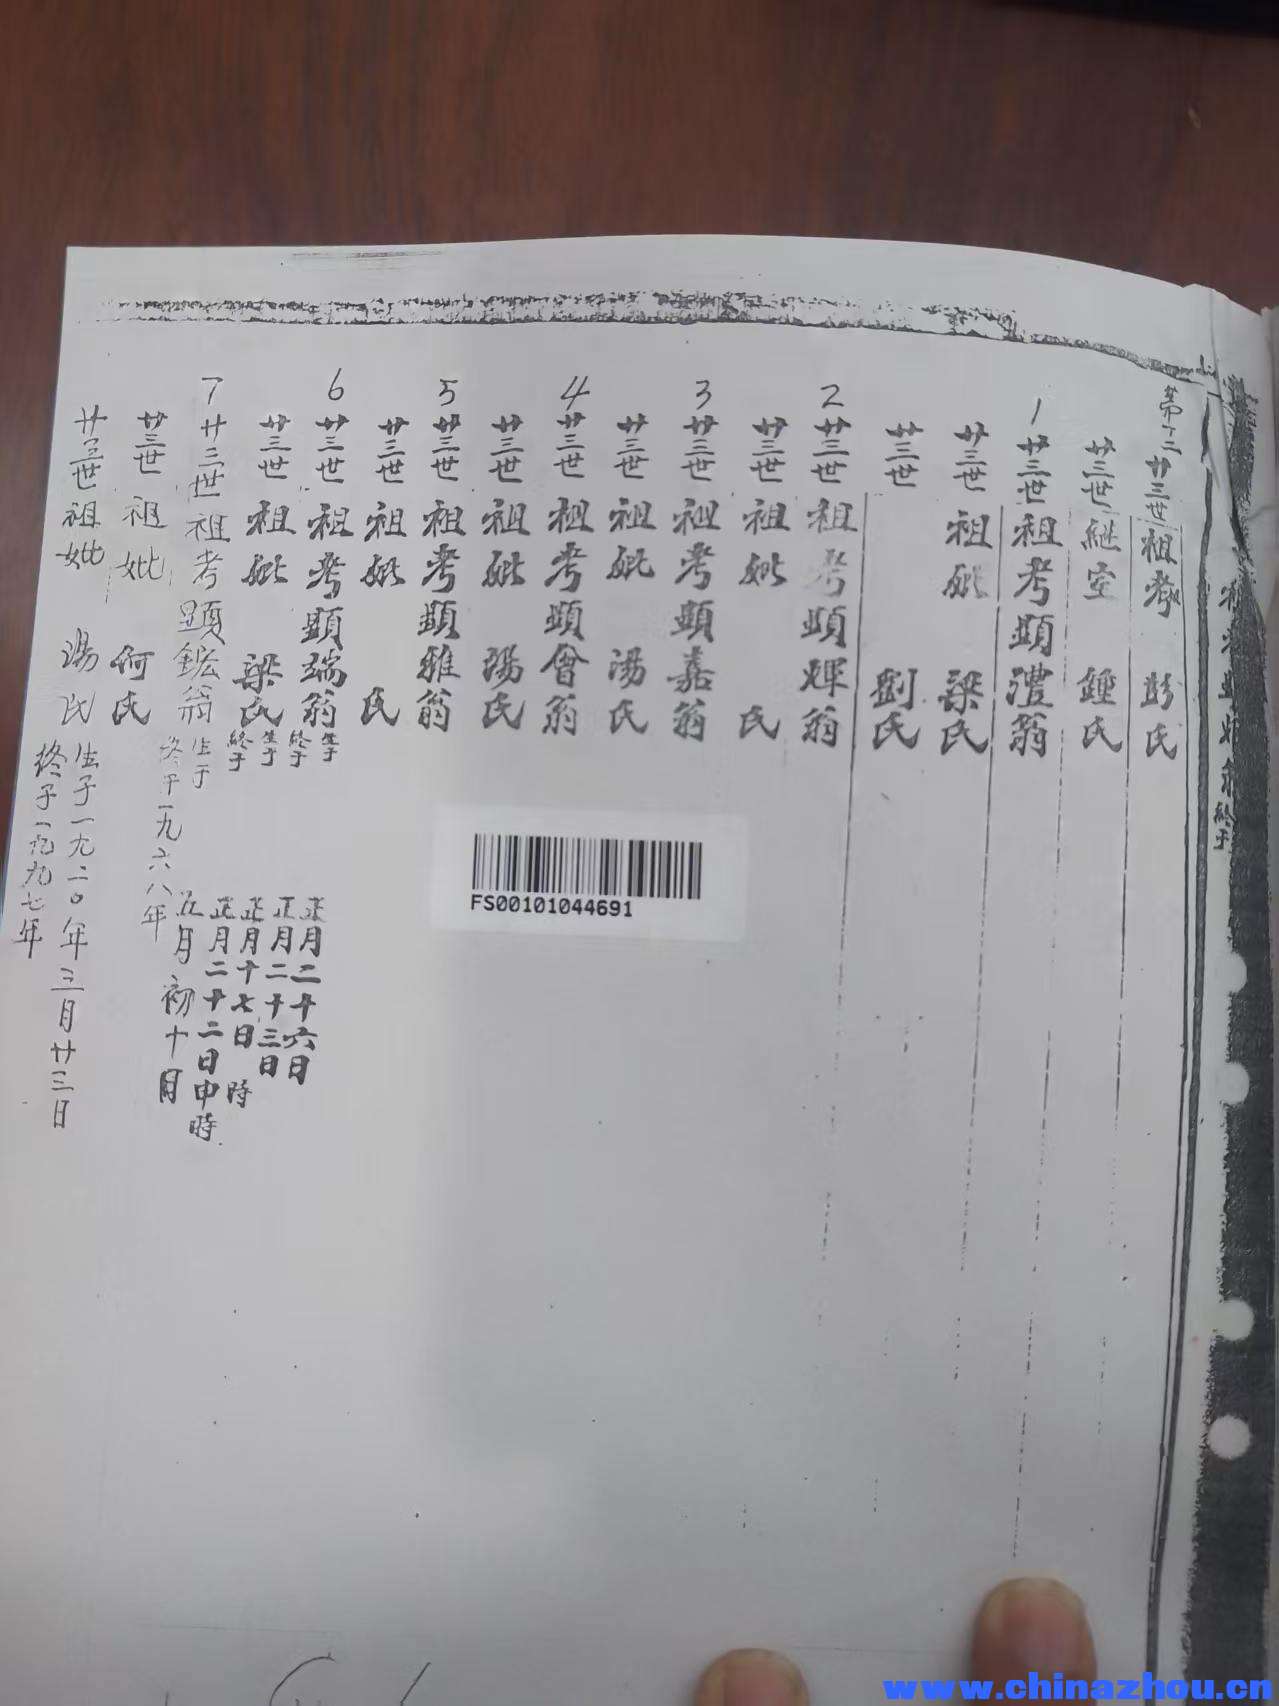 終于
第十三
廿三世祖考 彭氏
廿三世継室 鍾氏
1 廿三世祖考顕澧翁
廿三世 祖妣 梁氏
廿三世 劉氏
2 廿三世祖考顕輝翁
廿三世祖妣 氏
3 廿三世祖考顕嘉翁
廿三世祖妣 湯氏
4 廿三世祖考顕會翁
廿三世祖妣 湯氏
5 廿三世祖考顕雅翁
廿三世祖妣 氏
6 廿三世祖考顕端翁 生于 正月二十六日
終于 正月二十三日
廿三世祖妣 梁氏 生于 正月十七日 時
終于 正月二十二日申時
7 廿三世祖考顕鋐翁 生于 五月初十日
終于一九六八年
廿三世祖妣 何氏
廿三世祖妣 湯氏 生于一九二〇年三月廿三日
終于一九九七年
FS00101044691
www.chinazhou.cn